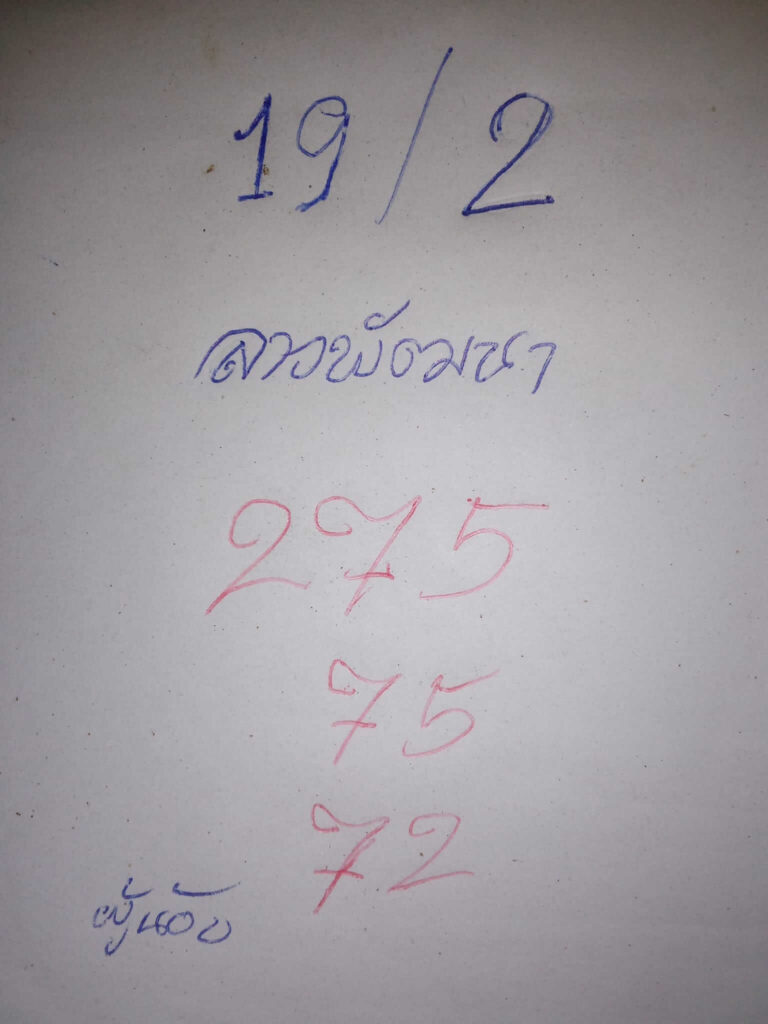 19/2
ลาวพัฒนา
275
75
72
ผู้น้อย